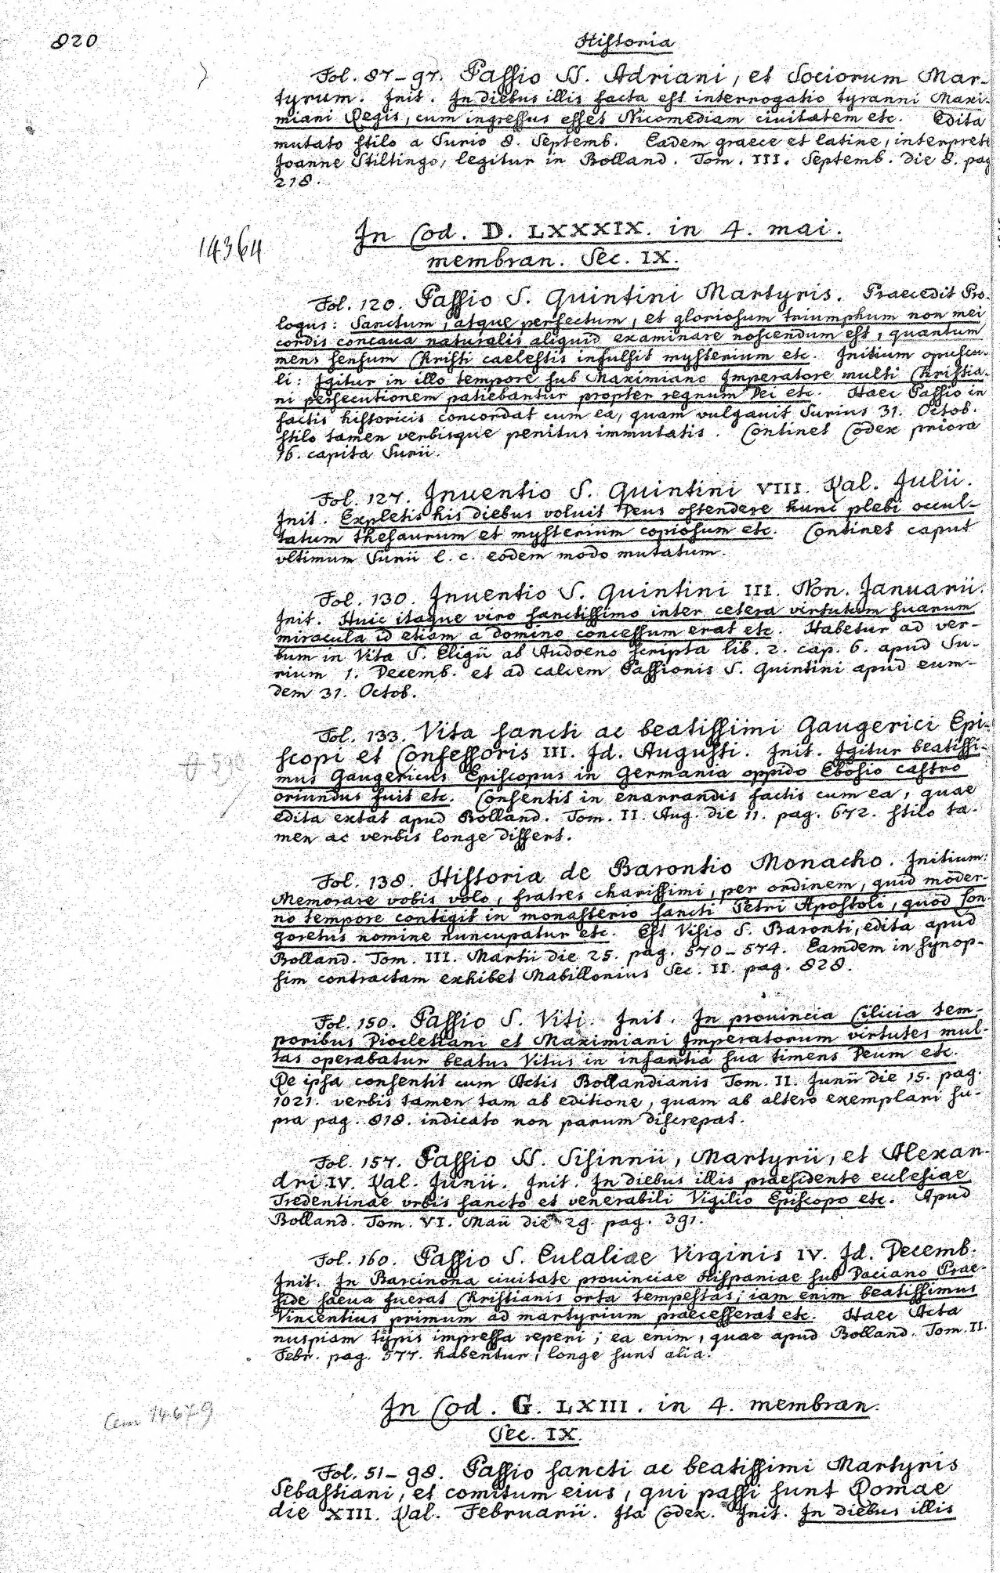 820
Historia
Fol. 87-97. Passio SS. Adriani, et Sociorum Mar-
tyrum. Init. In diebus illis facta est interrogatio tyranni Maxi-
miani Regis, cum ingressus esset Nicomediam civitatem etc. Edita
mutato stilo a Surio 8. Septemb. Eadem graece et latine, interprete
Joanne Stiltingo, legitur in Bolland. Tom. III. Septemb. die 8. pag
218.
14364
In Cod. D. LXXXIX. in 4. mai.
membran. Sec. IX.
Fol. 120. Passio S. Quintini Martyris. Praecedit Pro-
logus: Sanctum, atque perfectum, et gloriosum triumphum non mei
cordis concava naturalis aliquid examinare noscendum est, quantum
mens sensum Christi caelestis infulsit mysterium etc. Initium opuscu-
li: Igitur in illo tempore sub Maximiano Imperatore multi Christia-
ni persecutionem patiebantur propter regnum Dei etc. Haec Passio in
factis historicis concordat cum ea, quam vulgavit Surius 31. Octob.
stilo tamen verbisque penitus immutatis. Continet Codex priora
16. capita Surii.
Fol. 127. Inventio S. Quintini VIII. Kal. Julii.
Init. Expletis his diebus voluit Deus ostendere hunc plebi occul-
tatum thesaurum et mysterium copiosum etc. Continet caput
ultimum Surii l. c. eodem modo mutatum.
Fol. 130. Inventio S. Quintini III. Non. Januarii.
Init. Huic itaque viro sanctissimo inter cetera virtutum suarum
miracula id etiam a domino concessum erat etc. Habetur ad ver-
bum in Vita S. Eligii ab Audoeno scripta lib. 2. cap. 6. apud Su-
rium 1. Decemb. et ad calcem Passionis S. Quintini apud eum-
dem 31. Octob.
Fol. 133. Vita sancti ac beatissimi Gaugerici Epi-
scopi et Confessoris III. Id. Augusti. Init. Igitur beatissi-
mus Gaugericus Episcopus in Germania oppido Ebosio castro
oriundus fuit etc. Consentit in enarrandis factis cum ea, quae
edita extat apud Bolland. Tom. II. Aug. die 11. pag. 672. stilo ta-
men ac verbis longe differt.
Fol. 138. Historia de Barontio Monacho. Initium:
Memorare vobis volo, fratres charissimi, per ordinem, quid moder-
no tempore contigit in monasterio sancti Petri Apostoli, quod Lon-
goretus nomine nuncupatur etc. Est Visio S. Baronti, edita apud
Bolland. Tom. III. Martii die 25. pag. 570-574. Eamdem in synop-
sim contractam exhibet Mabillonius Sec. II. pag. 828.
Fol. 150. Passio S. Viti. Init. In provincia Cilicia tem-
poribus Diocletiani et Maximiani Imperatorum virtutes mul-
tas operabatur beatus Vitus in infantia sua timens Deum etc.
De ipsa consentit cum Actis Bollandianis Tom. II. Junii die 15. pag.
1021. verbis tamen tam ab editione, quam ab altero exemplari su-
pra pag. 818. indicato non parum discrepat.
Fol. 157. Passio SS. Sisinnii, Martyrii, et Alexan-
dri IV. Kal. Junii. Init. In diebus illis praesidente ecclesiae
Tredentinae urbis sancto et venerabili Vigilio Episcopo etc. Apud
Bolland. Tom. VI. Maii die 29. pag. 391.
Fol. 160. Passio S. Eulaliae Virginis IV. Id. Decemb.
Init. In Barcinona civitate provinciae Hispaniae sub Daciano Prae-
side saeva fuerat Christianis orta tempestas; iam enim beatissimus
Vincentius primum ad martyrium praecesserat etc. Haec Acta
nuspiam typis impressa reperi; ea enim, quae apud Bolland. Tom. II.
Febr. pag. 577. habentur, longe sunt alia.
Clm 14679
In Cod. G. LXIII. in 4. membran.
Sec. IX.
Fol. 51-98. Passio sancti ac beatissimi Martyris
Sebastiani, et comitum eius, qui passi sunt Romae
die XIII. Kal. Februarii. Ita Codex. Init. In diebus illis